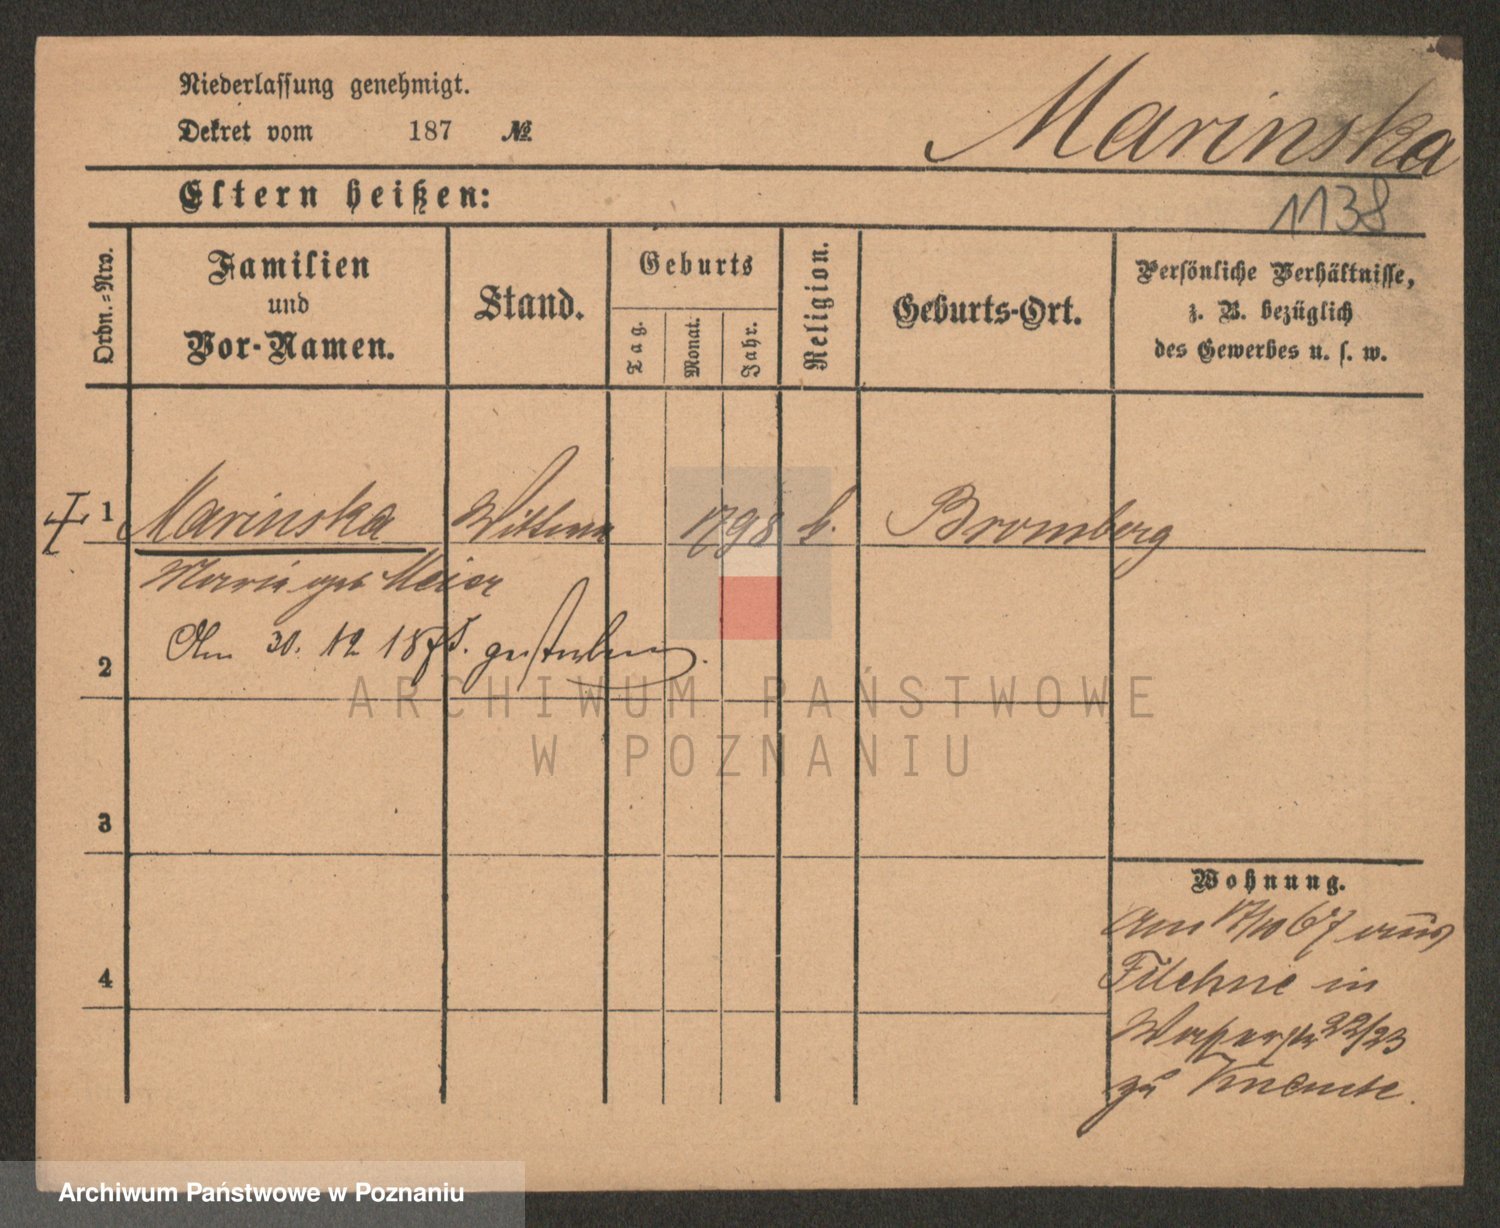 Niederlassung genehmigt.
Dekret vom 187 №
Marinska
Eltern heißen:
1138
Ordn.=Nro.
Familien
und
Vor-Namen.
Stand.
Geburts
Tag.
Monat.
Jahr.
Religion.
Geburts-Ort.
Persönliche Verhältnisse,
z. B. bezüglich
des Gewerbes u. s. w.
1 Marinska Wittwe 1798 k. Bromberg
Maria geb Meier
Am 30. 12 1875. gestorben.
2
ARCHIWUM PAŃSTWOWE
W POZNANIU
3
4
Wohnung.
Am 17/10 67 aus
Filehne in
Wasserstr 22/23
zu
Archiwum Państwowe w Poznaniu